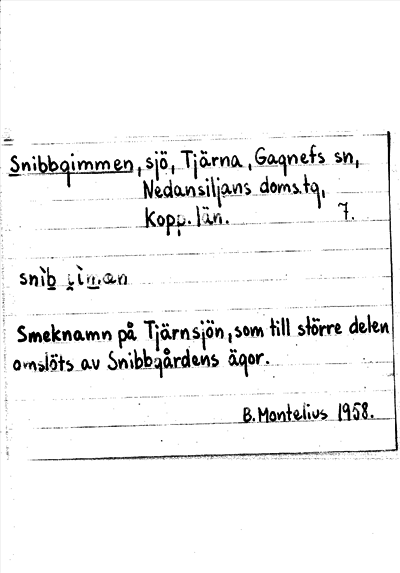 Snibbgimmen, sjö, Tjärna, Gagnefs sn,
Nedansiljans doms.tg,
Kopp. län. 7.
snib
Smeknamn på Tjärnsjön, som till större delen
omslöts av Snibbgårdens ägor.
B. Montelius 1958.